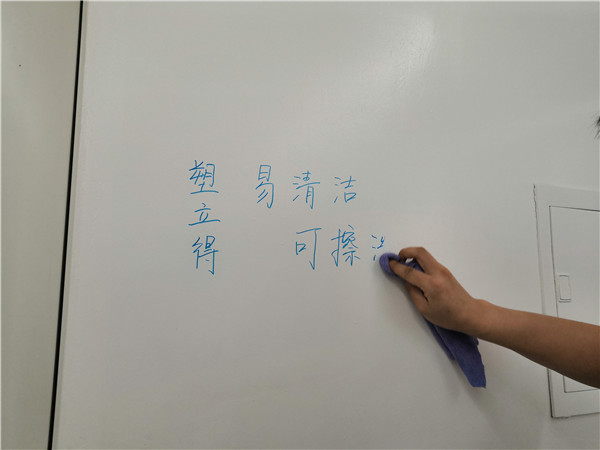 塑立得
易清洁
可擦